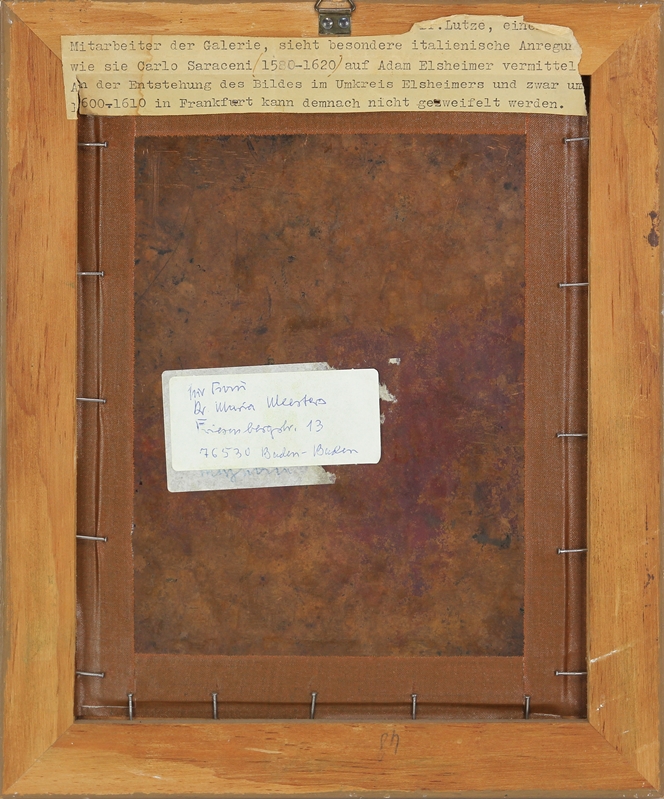 Dr.Lutze, eine
Mitarbeiter der Galerie, sieht besondere italienische Anregu
wie sie Carlo Saraceni/1580-1620/auf Adam Elsheimer vermittel
An der Entstehung des Bildes im Umkreis Elsheimers und zwar um
1600-1610 in Frankfurt kann demnach nicht gezweifelt werden.
für Frau
Dr Maria Meesters
Friesenbergstr. 13
76530 Baden-Baden